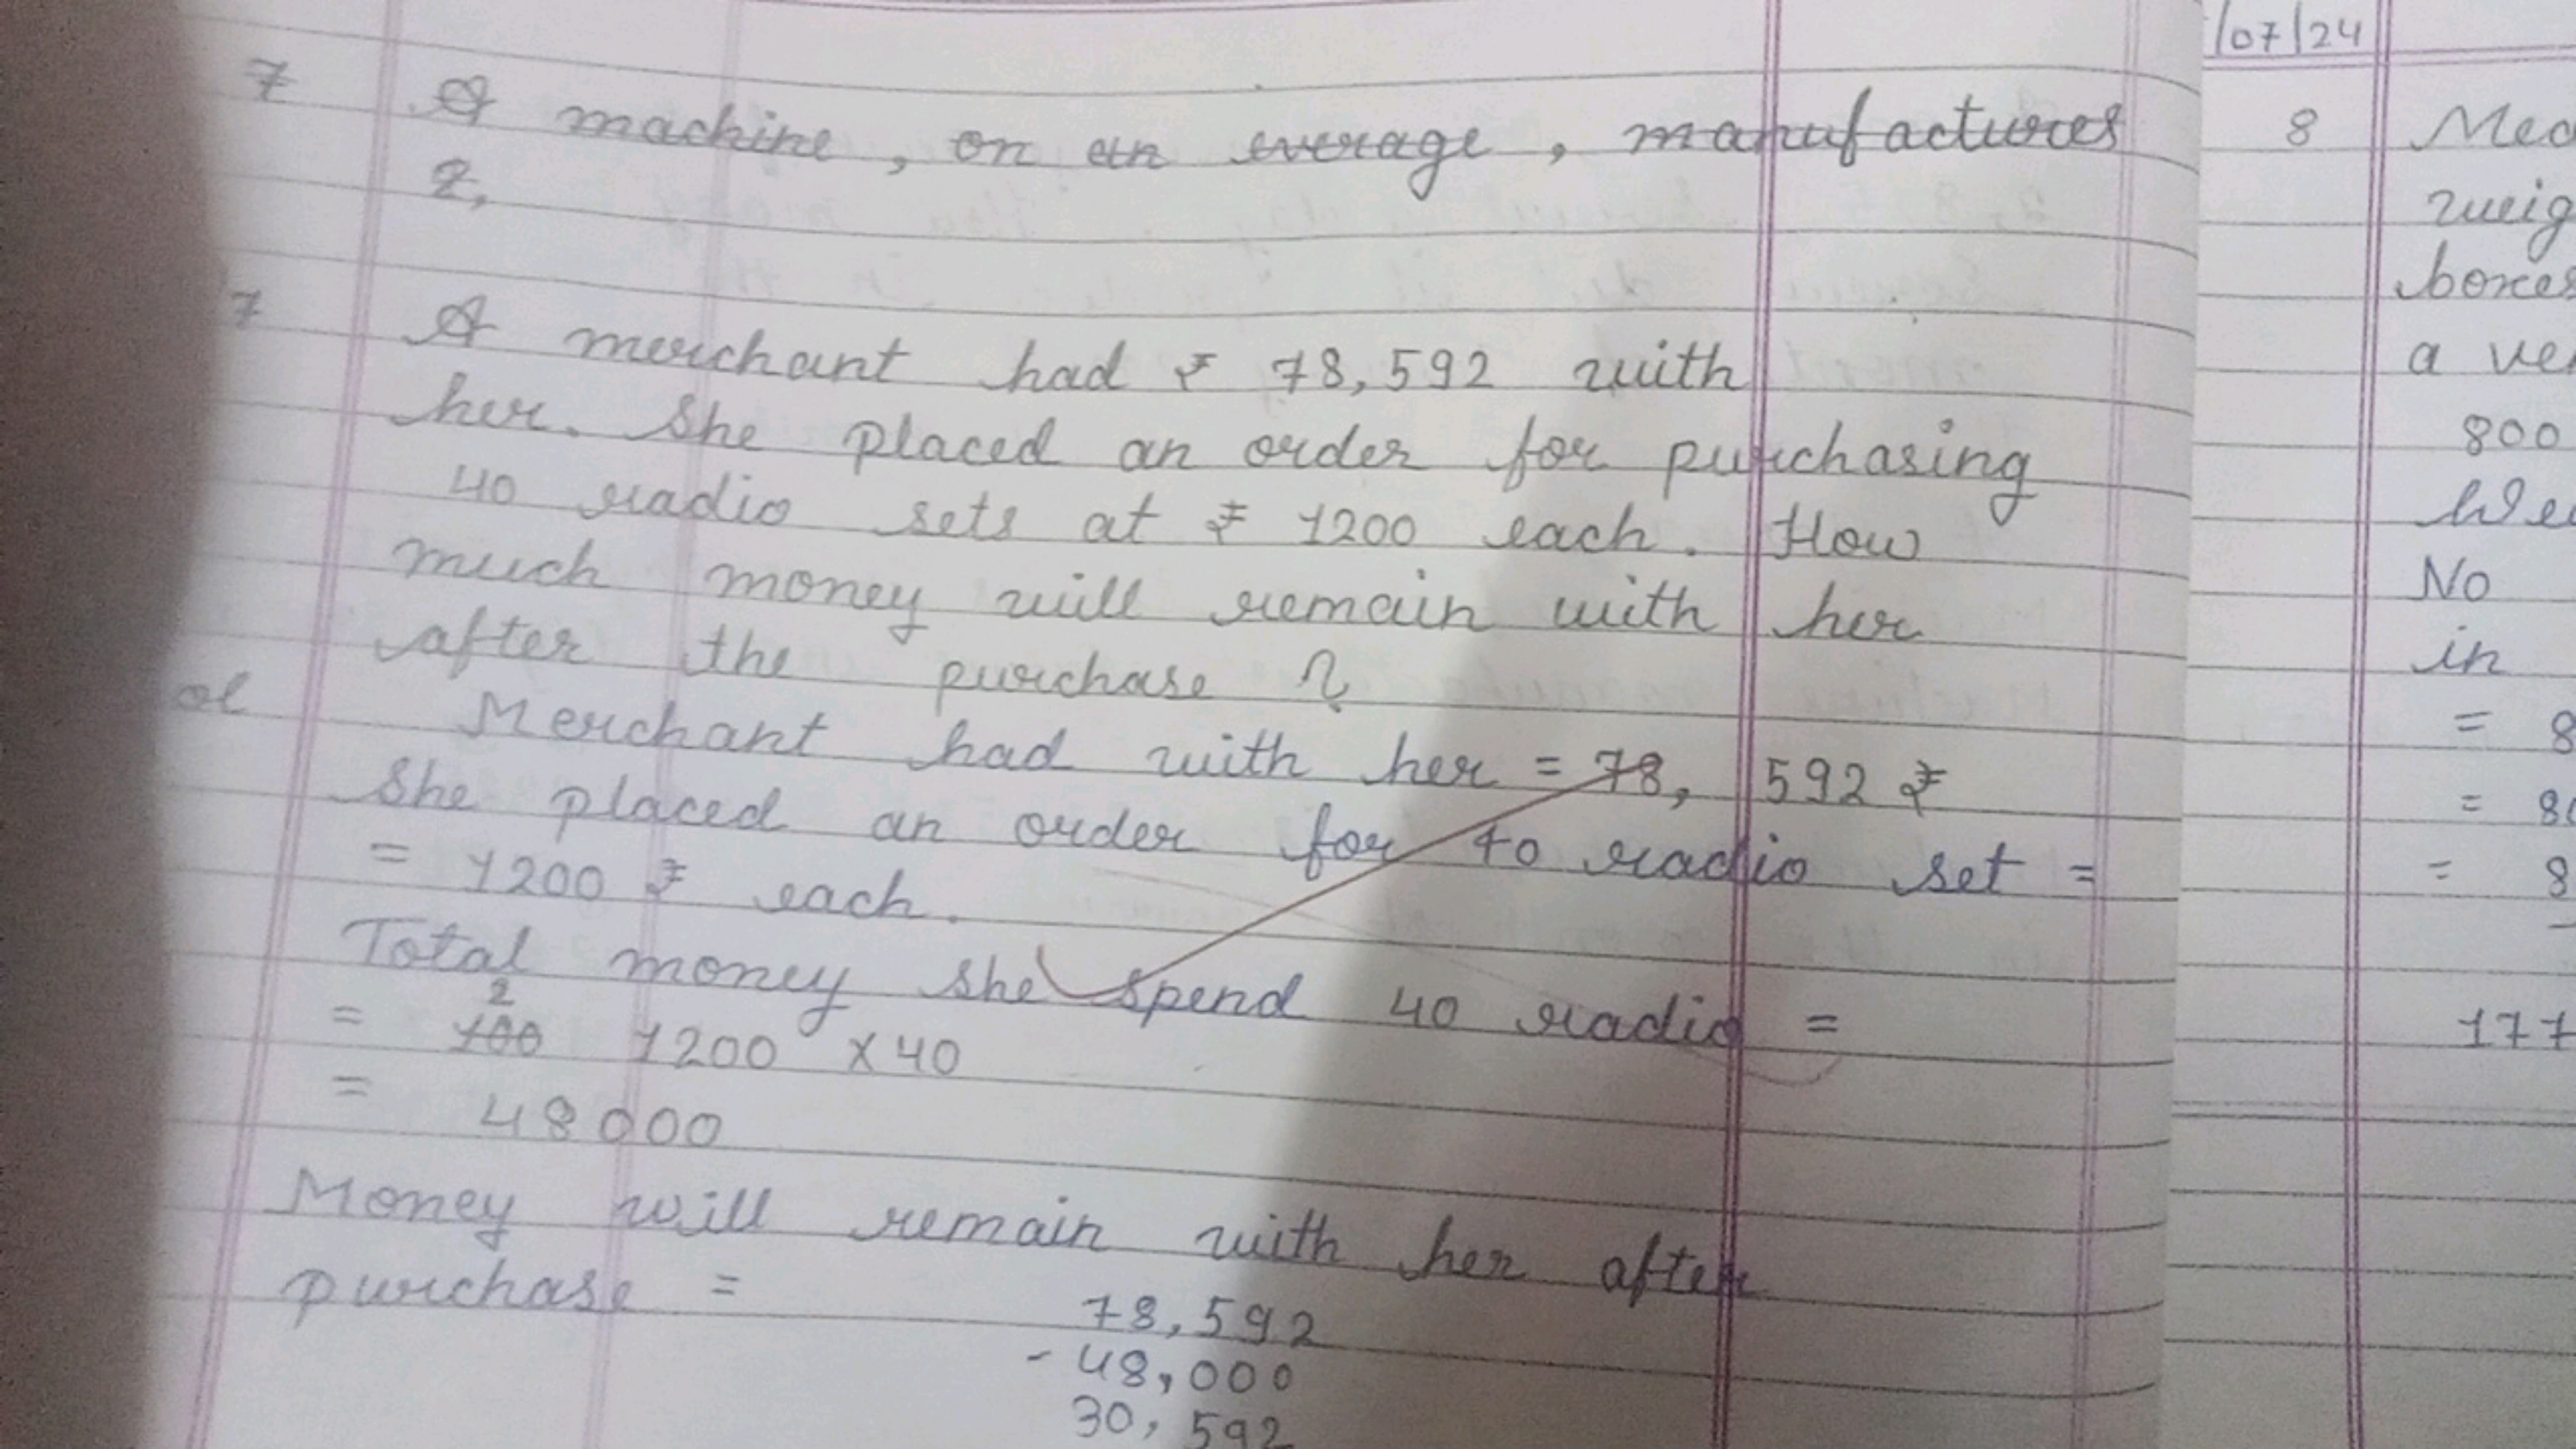 7 A machine, on an average, manufactures
2,
7 A merchant had ₹ 78,592 with
her. She placed an order for purchasing
40 radio sets at ₹ 1200 each. How
much money will remain with her
after the purchase ?
ol Merchant had with her = 78, 592 ₹
She placed an order for 40 radio set =
= 1200 ₹ each.
Total money she spend 40 radio =
2
= 100 1200 × 40
= 48000
Money will remain with her after
purchase =
78,592
- 48,000
30,592
/07/24
8 Mea
weig
boxes
a ve
800
We
No
in
= 8
= 80
= 8
177